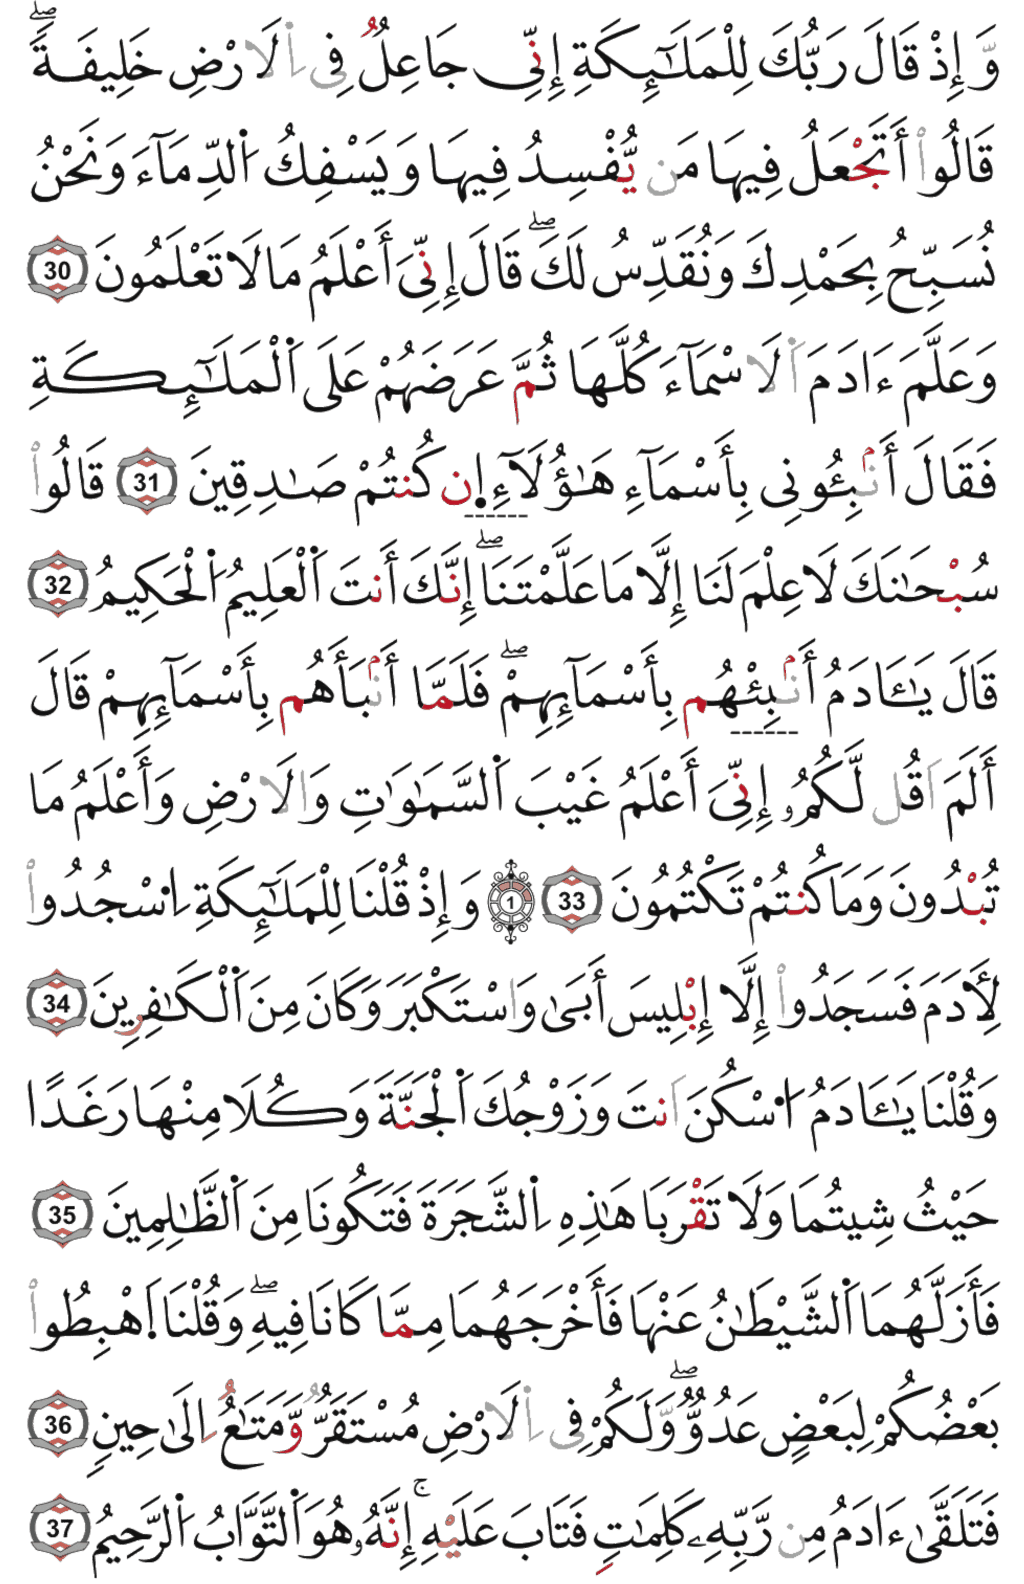 وَّإِذْ قَالَ رَبُّكَ لِلْمَلَٰٓئِكَةِ إِنِّى جَاعِلٌ فِى اِ۬لَارْضِ خَلِيفَةًۖ
قَالُوٓاْ أَتَجْعَلُ فِيهَا مَن يُّفْسِدُ فِيهَا وَيَسْفِكُ اُ۬لدِّمَآءَ وَنَحْنُ
نُسَبِّحُ بِحَمْدِكَ وَنُقَدِّسُ لَكَۖ قَالَ إِنِّىَ أَعْلَمُ مَا لَا تَعْلَمُونَ 30
وَعَلَّمَ ءَادَمَ اَ۬لَاسْمَآءَ كُلَّهَا ثُمَّ عَرَضَهُمْ عَلَى اَ۬لْمَلَٰٓئِكَةِ
فَقَالَ أَنۢبِـُٔونِى بِأَسْمَآءِ هَٰٓؤُلَآءِ اِ۪ن كُنتُمْ صَٰدِقِينَ 31 قَالُواْ
سُبْحَٰنَكَ لَا عِلْمَ لَنَآ إِلَّا مَا عَلَّمْتَنَآۖ إِنَّكَ أَنتَ اَ۬لْعَلِيمُ اُ۬لْحَكِيمُ 32
قَالَ يَٰٓـَٔادَمُ أَنۢبِئْهُم بِأَسْمَآئِهِمْۖ فَلَمَّآ أَنۢبَأَهُم بِأَسْمَآئِهِمْ قَالَ
أَلَمَ اَقُل لَّكُمُۥٓ إِنِّىَ أَعْلَمُ غَيْبَ اَ۬لسَّمَٰوَٰتِ وَالَارْضِ وَأَعْلَمُ مَا
تُبْدُونَ وَمَا كُنتُمْ تَكْتُمُونَ 33 1 وَإِذْ قُلْنَا لِلْمَلَٰٓئِكَةِ اِ۟سْجُدُواْ
لِأٓدَمَ فَسَجَدُوٓاْ إِلَّآ إِبْلِيسَ أَبَىٰ وَاسْتَكْبَرَ وَكَانَ مِنَ اَ۬لْكَٰفِرِينَ 34
وَقُلْنَا يَٰٓـَٔادَمُ اُ۟سْكُنَ اَنتَ وَزَوْجُكَ اَ۬لْجَنَّةَ وَكُلَا مِنْهَا رَغَدًا
حَيْثُ شِيتُمَا وَلَا تَقْرَبَا هَٰذِهِ اِ۬لشَّجَرَةَ فَتَكُونَا مِنَ اَ۬لظَّٰلِمِينَ 35
فَأَزَلَّهُمَا اَ۬لشَّيْطَٰنُ عَنْهَا فَأَخْرَجَهُمَا مِمَّا كَانَا فِيهِۖ وَقُلْنَا اَ۪هْبِطُواْ
بَعْضُكُمْ لِبَعْضٍ عَدُوٌّۖ وَّلَكُمْ فِى اِ۬لَارْضِ مُسْتَقَرٌّ وَّمَتَٰعٌ اِلَىٰ حِينٍ 36
فَتَلَقَّىٰٓ ءَادَمُ مِن رَّبِّهِۦ كَلِمَٰتٍ فَتَابَ عَلَيْهِۚ إِنَّهُۥ هُوَ اَ۬لتَّوَّابُ اُ۬لرَّحِيمُ 37